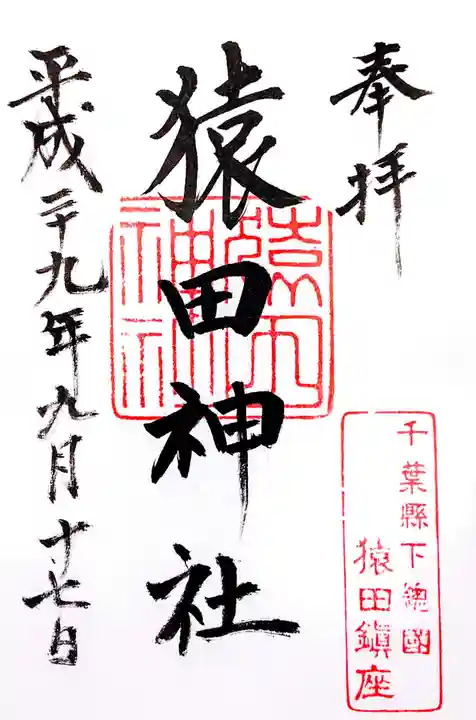 奉拝
猿田神社
平成二十九年九月十七日
千葉縣下總國
猿田鎮座